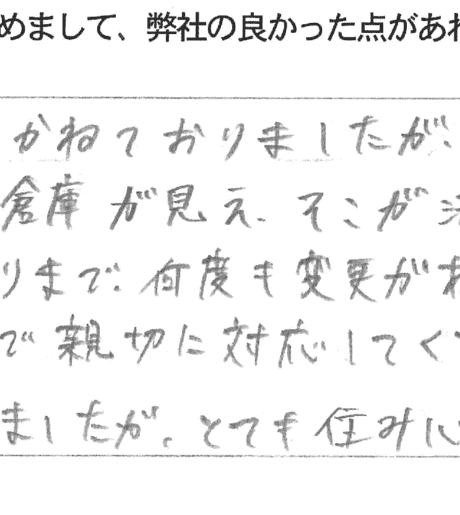 めまして、弊社の良かった点があ
かねておりましたが、
倉庫が見え、そこが
りまで、何度も変更が
で親切に対応してく
ましたが、とても住み心